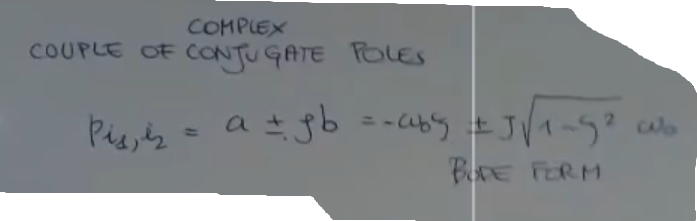 COMPLEX
COUPLE OF CONJUGATE POLES
Pi₁,i₂ = a ± jb = -ω₀ζ ± J√1-ζ² ω₀
BODE FORM